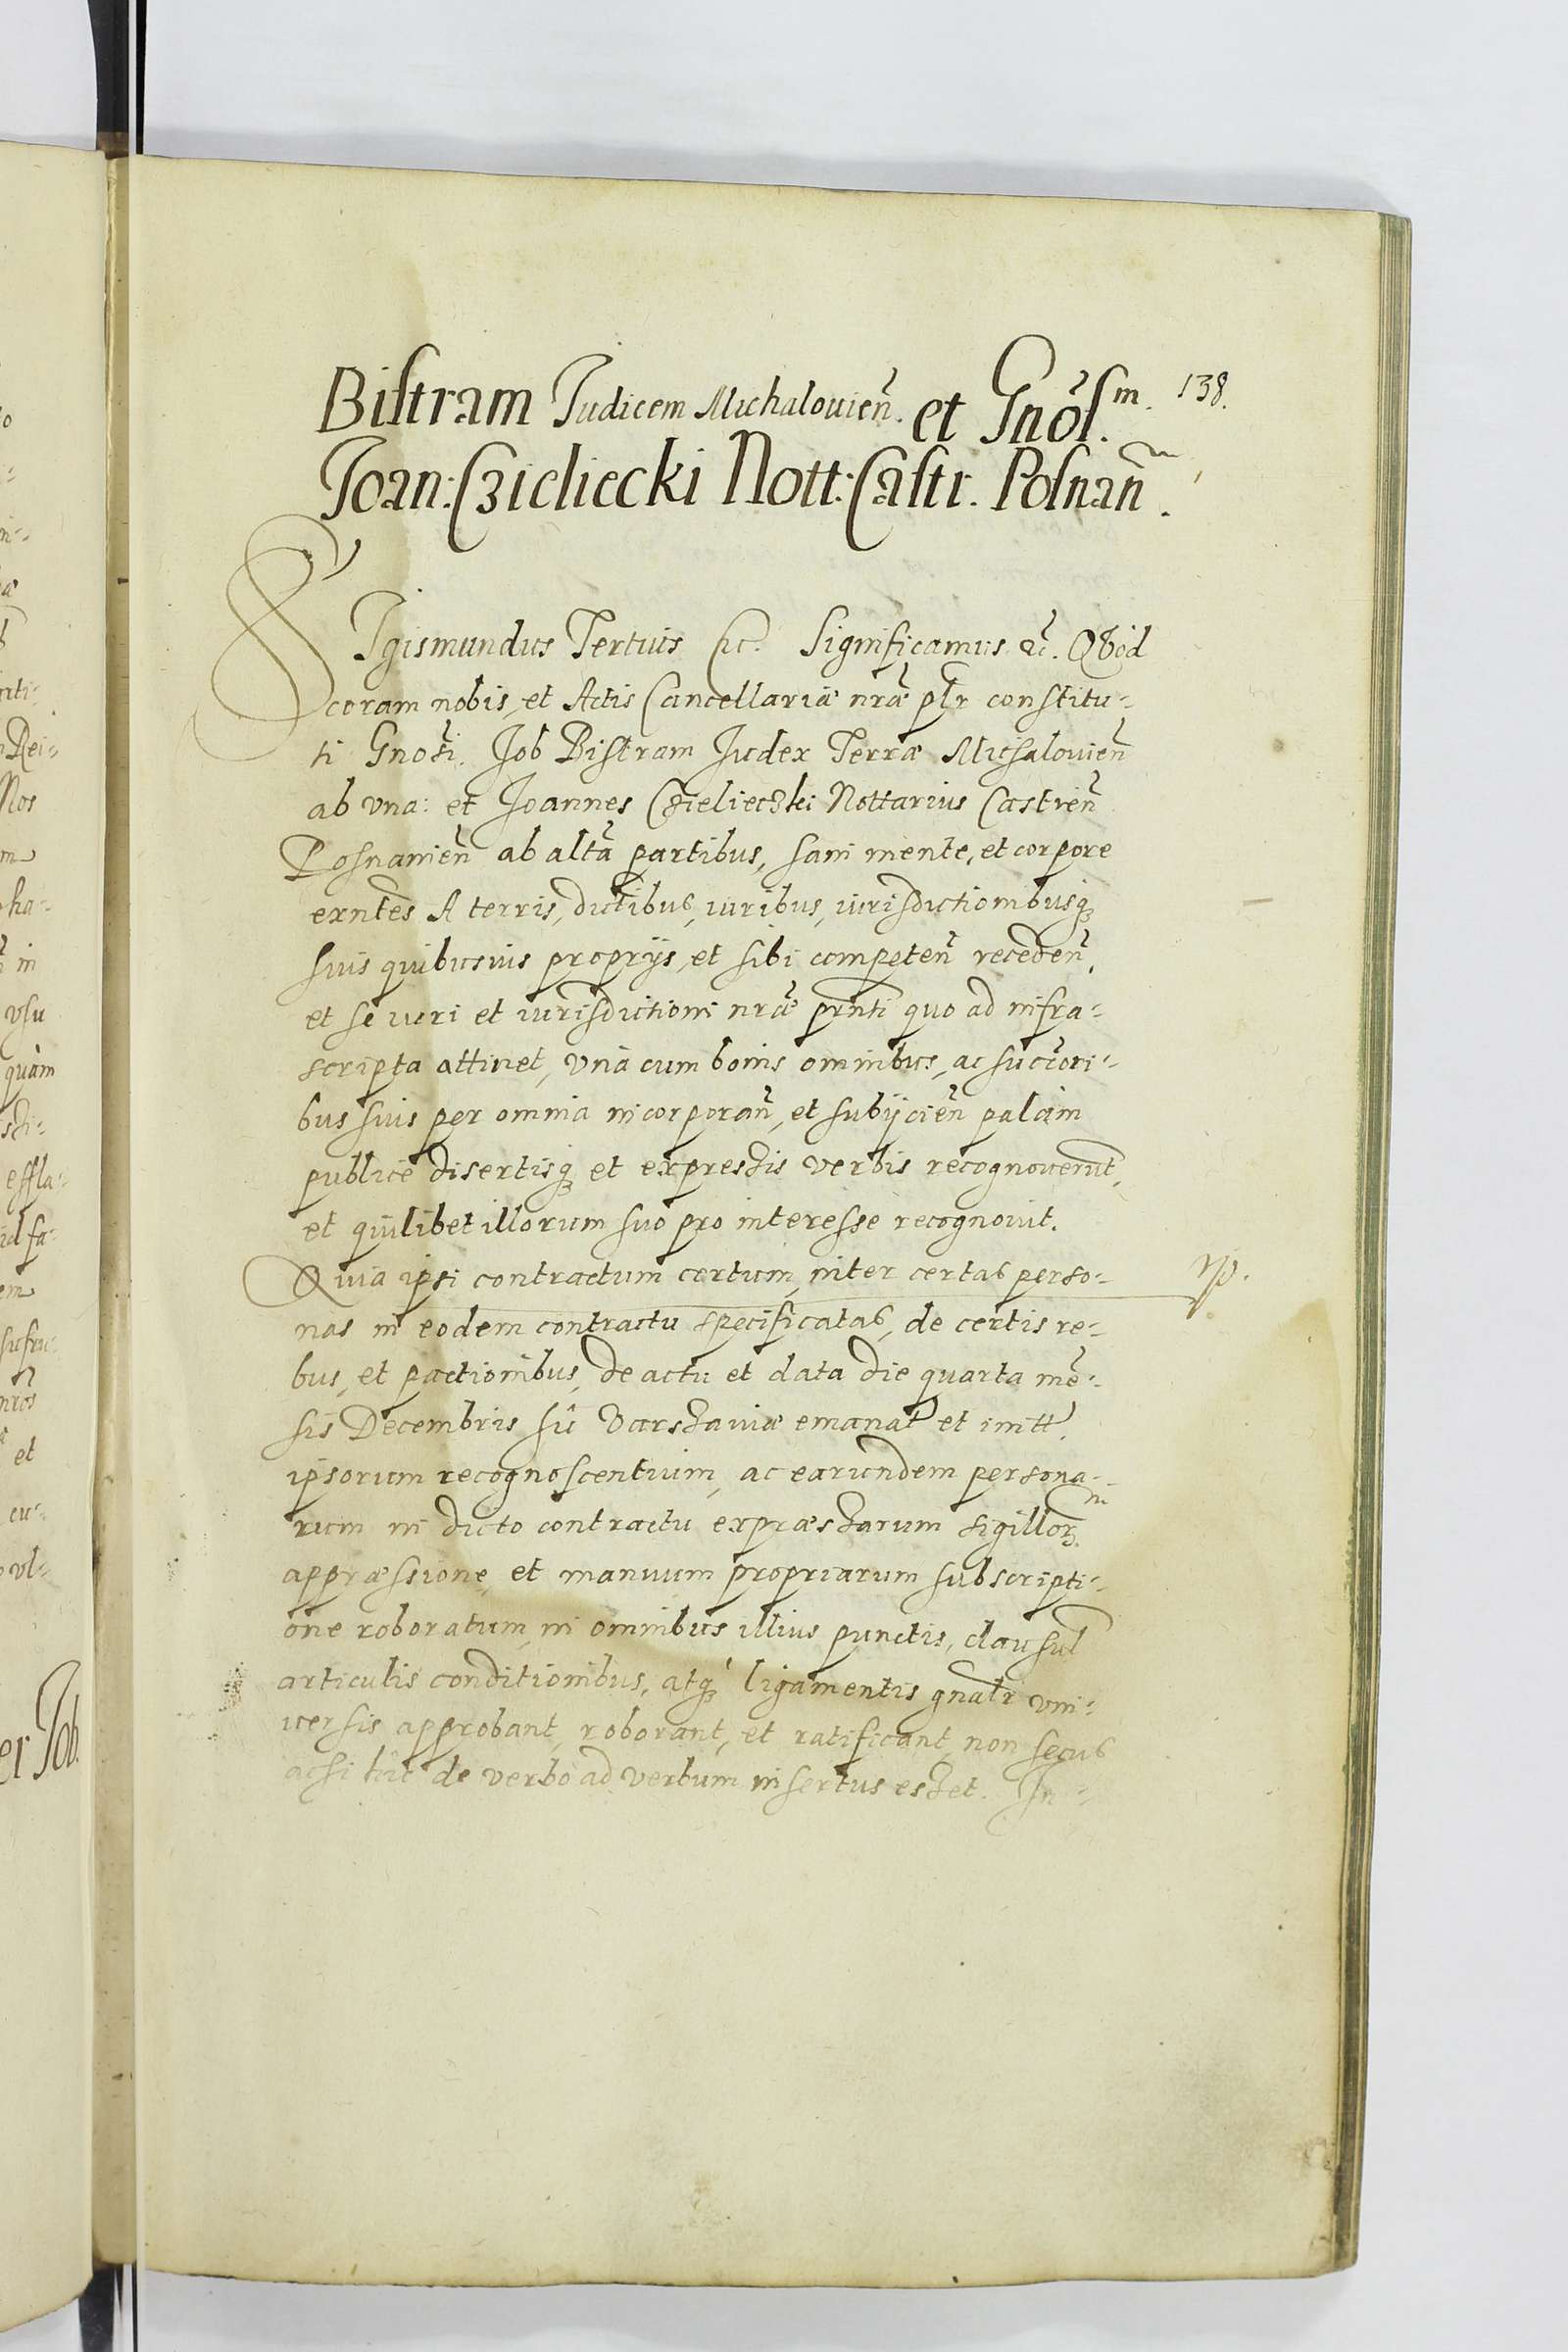 Bistram Judicem Michalouien̄. et Gnōs.m. 138.
Joan: Czieliecki Nott: Castr. Posnan̄.
SIgismundus Tertius etc. Significamus etc. Quod
coram nobis, et Actis Cancellariæ nræ plr constitu-
ti Gnosi. Job Bistram Judex Terræ Michalouien̄
ab vna: et Joannes Czielieczki Nottarius Castren̄
Posnanien̄ ab altā partibus, sani mente, et corpore
exn̄tes A terris, dictibus, iuribus, iurisdictionibusq3
suis quibusuis proprijs, et sibi competen̄ receden̄,
et se iuri et iurisdictioni nræ prn̄ti quo ad infra-
scripta attinet, vnà cum bonis omnibus, ac succori-
bus suis per omnia incorporan̄, et subijcien̄ palàm
publicè disertisq3 et expressis verbis recognouerūt,
et quilibet illorum suo pro interesse recognouit.
Quia ipsi contractum certum, inter certas perso-
nas in eodem contractu specificatas, de certis re-
bus, et pactionibus, de actu et data die quarta mē-
sis Decembris hîc Varssauiæ emanat̄ et initt̄,
ipsorum recognoscentium, ac earundem persona-
rum in dicto contractu expræssarum sigillor3
appræssione, et manuum propriarum subscripti-
one roboratum, in omnibus illius punctis, clausul
articulis conditionibus, atq3 ligamentis gnalr vni-
uersis approbant, roborant, et ratificant, non secus
acsi hîc de verbo ad verbum insertus esset. In-